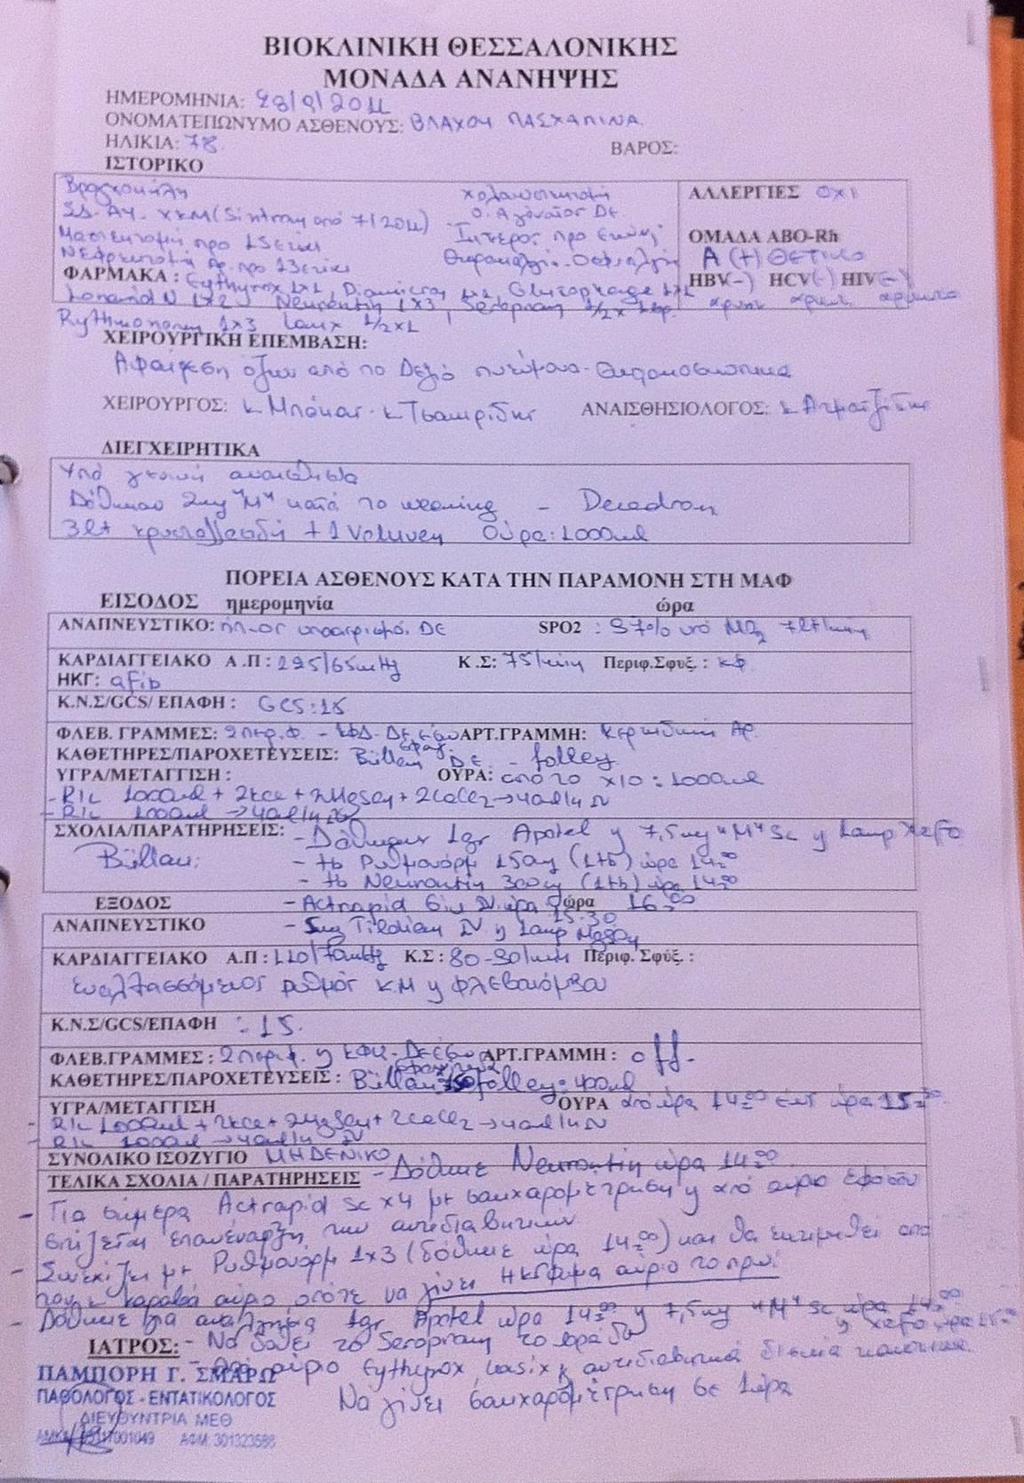 ΒΙΟΚΛΙΝΙΚΗ ΘΕΣΣΑΛΟΝΙΚΗΣ
ΜΟΝΑΔΑ ΑΝΑΝΗΨΗΣ
ΗΜΕΡΟΜΗΝΙΑ:
ΟΝΟΜΑΤΕΠΩΝΥΜΟ ΑΣΘΕΝΟΥΣ: ΒΛΑΧΟΥ ΠΑΣΧΑΛΙΝΑ
ΗΛΙΚΙΑ: 78 ΒΑΡΟΣ:
ΙΣΤΟΡΙΚΟ
Βρογχοκήλη
ΑΛΛΕΡΓΙΕΣ ΟΧΙ
ΣΔ-ΑΥ- ΧΚΜ (Sintrom από 7/2011)
Μαστεκτομή προ 15ετίας Ίκτερος προ
ΟΜΑΔΑ ABO-Rh
Νεφρεκτομή Αρ. προ 13ετίας
Α (+) ΘΕΤΙΚΟ
ΦΑΡΜΑΚΑ : Eythyrox 1x1, Diamicron 1x1 Glucophage 1x1
HBV(-) HCV(-) HIV(-)
Lonarid N 1x2 Neurontin 1x3, Seropram 1/2x
Rythmonorm 1x3 Lasix 1/2x1
ΧΕΙΡΟΥΡΓΙΚΗ ΕΠΕΜΒΑΣΗ:
Αφαίρεση όζου από το Δεξιό πνεύμονα-
ΧΕΙΡΟΥΡΓΟΣ: κ Μπόκας - κ Τσακιρίδης ΑΝΑΙΣΘΗΣΙΟΛΟΓΟΣ: κ
ΔΙΕΓΧΕΙΡΗΤΙΚΑ
Υπό γενική αναισθησία
Δόθηκαν 2mg "M" κατά το weaning - Decadron
3lt κρυσταλλοειδή + 1 Voluven Ούρα: 1000ml
ΠΟΡΕΙΑ ΑΣΘΕΝΟΥΣ ΚΑΤΑ ΤΗΝ ΠΑΡΑΜΟΝΗ ΣΤΗ ΜΑΦ
ΕΙΣΟΔΟΣ ημερομηνία ώρα
ΑΝΑΠΝΕΥΣΤΙΚΟ: ήπιος υποαερισμός ΔΕ SPO2 : 97% υπό
ΚΑΡΔΙΑΓΓΕΙΑΚΟ Α.Π: Κ.Σ: 75/min Περιφ.Σφυξ. : κφ
ΗΚΓ: afib
Κ.Ν.Σ/GCS/ ΕΠΑΦΗ : GCS:15
ΦΛΕΒ. ΓΡΑΜΜΕΣ: 2 περ.φ. ΑΡΤ.ΓΡΑΜΜΗ: Κερκιδική Αρ.
ΚΑΘΕΤΗΡΕΣ/ΠΑΡΟΧΕΤΕΥΣΕΙΣ: Büllau ΔΕ - folley
ΥΓΡΑ/ΜΕΤΑΓΓΙΣΗ : ΟΥΡΑ: από το χ10 : 1000ml
- R/L 1000ml + 2KCl + 2MgSO4 + 2CaCl2 → 40ml/h IV
- R/L 1000ml → 40ml/h IV
ΣΧΟΛΙΑ/ΠΑΡΑΤΗΡΗΣΕΙΣ: - Δόθηκαν 1gr Apotel κ 7,5mg "M" sc κ 1amp Xefo
Büllau: - tb Ρυθμονόρμ 150mg (1tb) ώρα 14:00
- tb Neurontin 300mg (1tb) ώρα 14:00
ΕΞΟΔΟΣ ώρα 16:00
- Actrapid 6iu IV ώρα 15:30
ΑΝΑΠΝΕΥΣΤΙΚΟ - 5mg Tildiem IV κ 1amp MgSO4
ΚΑΡΔΙΑΓΓΕΙΑΚΟ Α.Π: 110/70mmHg Κ.Σ : 80-90/min Περιφ. Σφύξ. :
εναλλασσόμενος ρυθμός Κ.Μ κ φλεβοκόμβου
Κ.Ν.Σ/GCS/ΕΠΑΦΗ : 15.
ΦΛΕΒ.ΓΡΑΜΜΕΣ : 2 περιφ. κ ΚΦΚ- ΑΡΤ.ΓΡΑΜΜΗ : off.
ΚΑΘΕΤΗΡΕΣ/ΠΑΡΟΧΕΤΕΥΣΕΙΣ : Büllau folley: 400ml
ΥΓΡΑ/ΜΕΤΑΓΓΙΣΗ ΟΥΡΑ από ώρα 14:00 έως ώρα
- R/L 1000ml + 2KCl + 2MgSO4 + 2CaCl2 → 40ml/h IV
- R/L 1000ml → 40ml/h IV
ΣΥΝΟΛΙΚΟ ΙΣΟΖΥΓΙΟ ΜΗΔΕΝΙΚΟ
ΤΕΛΙΚΑ ΣΧΟΛΙΑ / ΠΑΡΑΤΗΡΗΣΕΙΣ - Δόθηκε Neurontin ώρα 14:00
- Για σήμερα Actrapid sc x4 με σακχαρομέτρηση κ από αύριο εφόσον
σιτίζεται επανέναρξη των αντιδιαβητικών
- Συνεχίζει με Ρυθμονόρμ 1x3 (δόθηκε ώρα 14:00) και θα εκτιμηθεί από
τον κ αύριο οπότε να γίνει ΗΚΓφημα αύριο το πρωί
- Δόθηκε για αναλγησία 1gr Apotel ώρα 14:00 κ 7,5mg "M" sc ώρα 14:00 κ xefo ώρα
ΙΑΤΡΟΣ: - Να δοθεί το Seropram το βράδυ
- Από αύριο Eythyrox, Lasix κ αντιδιαβητικά δισκία κανονικά.
Να γίνει σακχαρομέτρηση σε 1 ώρα
ΠΑΜΠΟΡΗ Γ. ΣΜΑΡΩ
ΠΑΘΟΛΟΓΟΣ - ΕΝΤΑΤΙΚΟΛΟΓΟΣ
ΔΙΕΥΘΥΝΤΡΙΑ ΜΕΘ
ΑΦΜ. 301323588